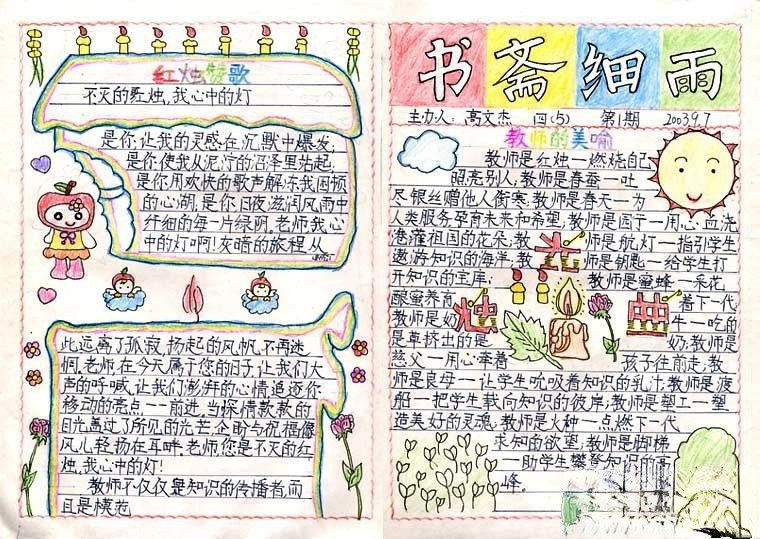 红烛赞歌
不灭的红烛,我心中的灯
是你,让我的灵感在沉默中爆发;
是你使我从泥泞的沼泽里站起;
是你用欢快的歌声解冻我困顿
的心湖,是你日夜滋润风雨中
纤细的每一片绿阴,老师,我心
中的灯啊!灰暗的旅程,从
此远离了孤寂,扬起的风帆,不再迷
惘,老师,在今天属于您的日子,让我们大
声的呼喊,让我们澎湃的心情追逐你
移动的亮点一一前进,当深情款款的
目光,高过了所见的光芒,企盼与祝福像
风儿轻扬在耳畔,老师,您是不灭的红
烛,我心中的灯!
教师不仅仅是知识的传播者,而
且是模范
书斋细雨
主办人:高文杰 四(5) 第1期 2003.9.7
教师的美喻
教师是红烛一燃烧自己
照亮别人;教师是春蚕一吐
尽银丝赠他人御寒;教师是春天一为
人类服务,孕育未来和希望;教师是园丁一用心血浇
灌祖国的花朵;教师是航灯一指引学生
遨游知识的海洋;教师是钥匙一给学生打
开知识的宝库;教师是蜜蜂一采花
酿蜜养育着下一代
教师是奶牛一吃的
是草挤出的是奶,教师是
慈父一用心牵着孩子往前走,教
师是良母一让学生吮吸着知识的乳汁,教师是渡
船一把学生载向知识的彼岸;教师是塑工一塑
造美好的灵魂;教师是火种一点燃下一代
求知的欲望;教师是脚梯
一助学生攀登知识的高
峰。